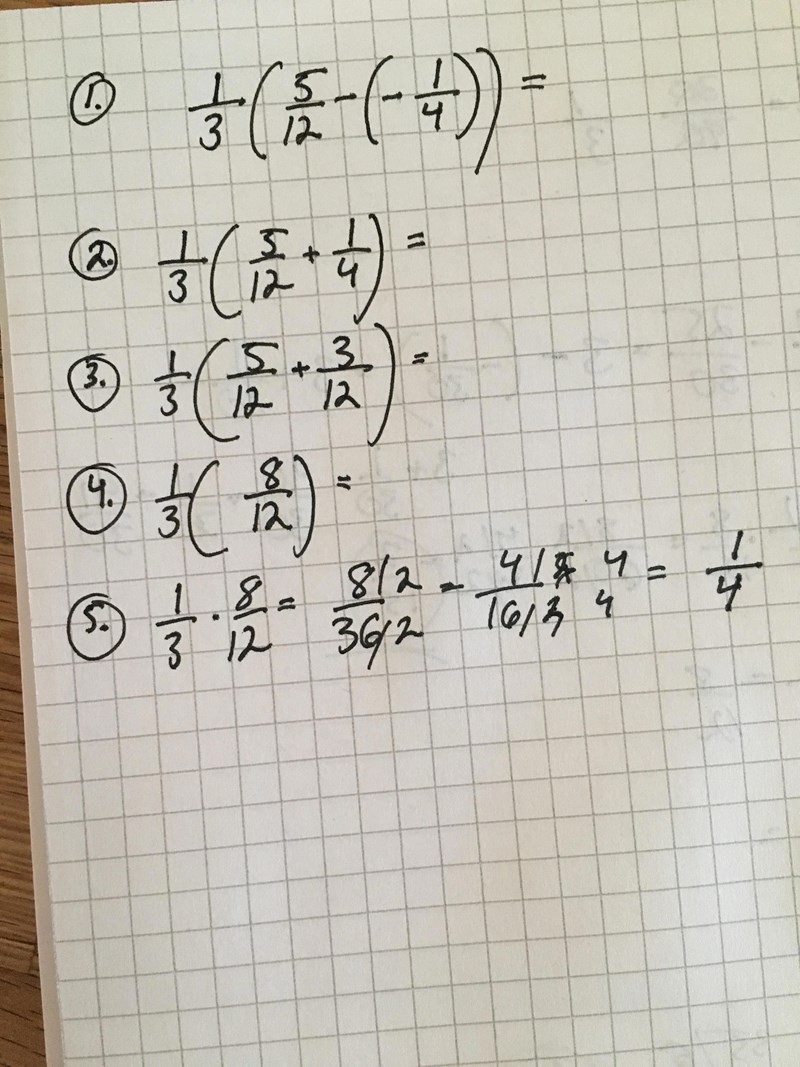 1. 1/3 (5/12 - (- 1/4)) =
2. 1/3 (5/12 + 1/4) =
3. 1/3 (5/12 + 3/12) =
4. 1/3 (8/12) =
5. 1/3 · 8/12 = 8/2 / 36/2 = 4/ 4 / 16/ 4 = 1/4